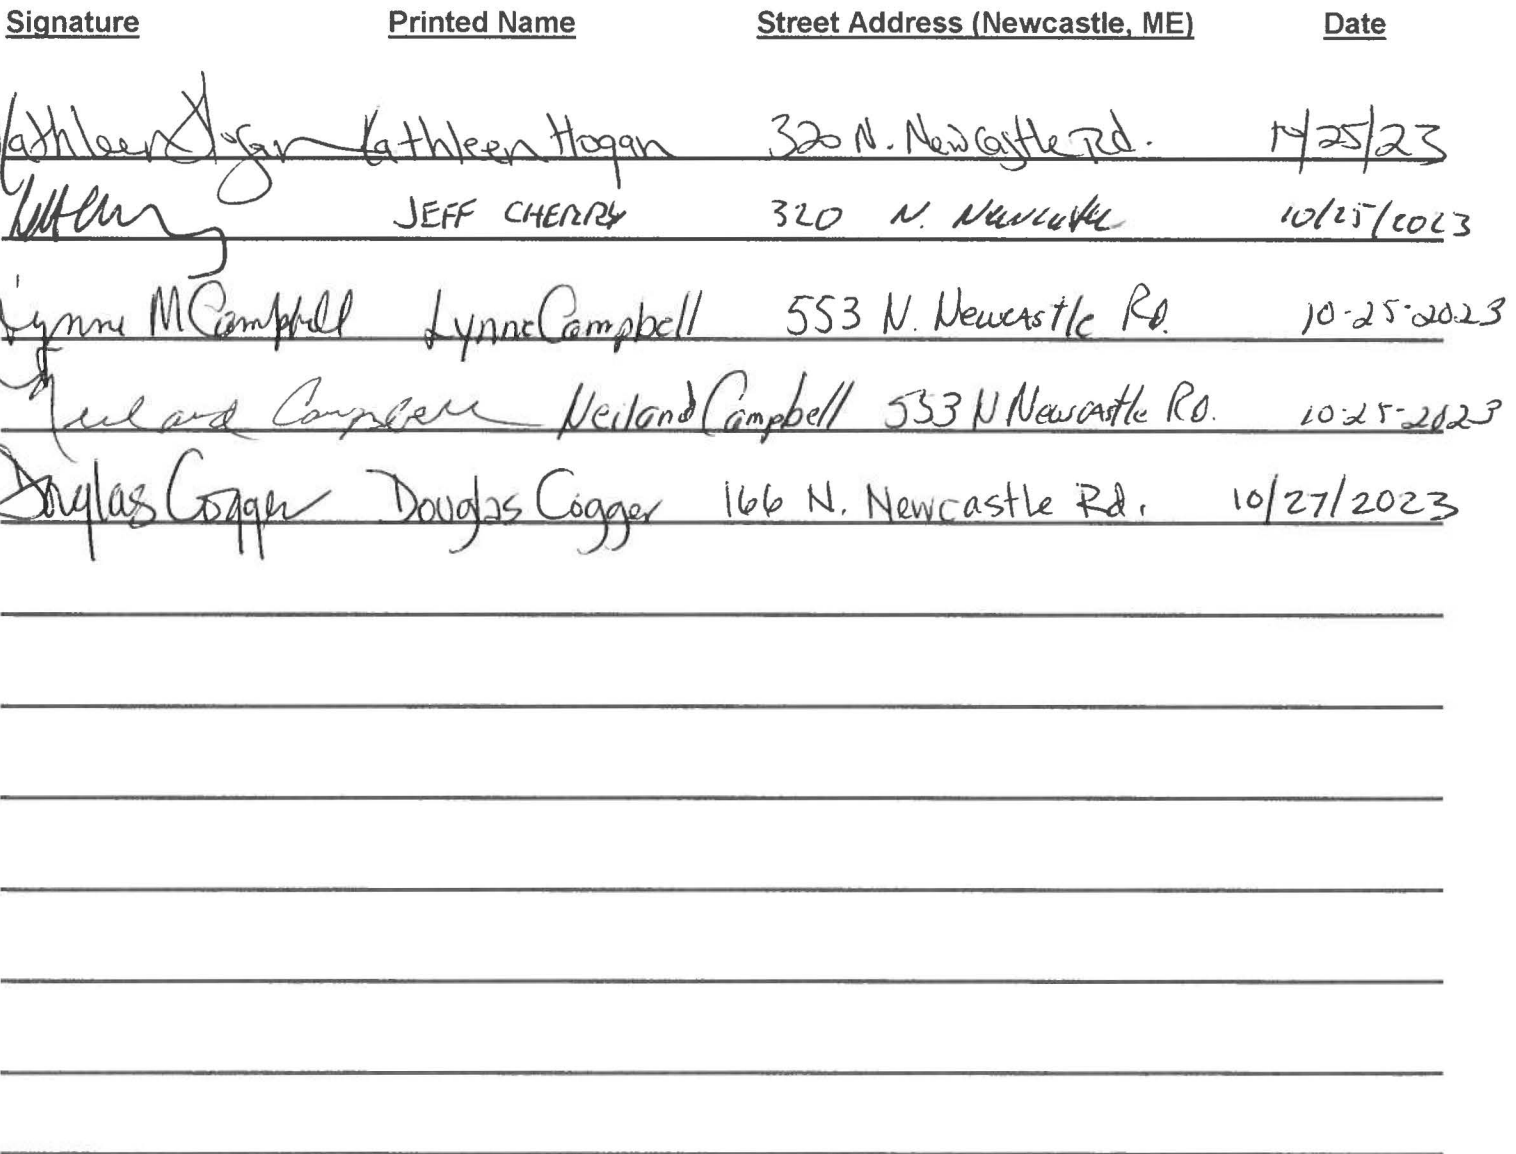 Signature Printed Name Street Address (Newcastle, ME) Date
Kathleen Hogan Kathleen Hogan 320 N. Newcastle Rd. 10/25/23
JEFF CHERRY 320 N. Newcastle 10/25/2023
Lynne M Campbell Lynne Campbell 553 N. Newcastle Rd. 10-25-2023
Neiland Campbell Neiland Campbell 553 N Newcastle Rd. 10-25-2023
Douglas Cogger Douglas Cogger 166 N. Newcastle Rd. 10/27/2023